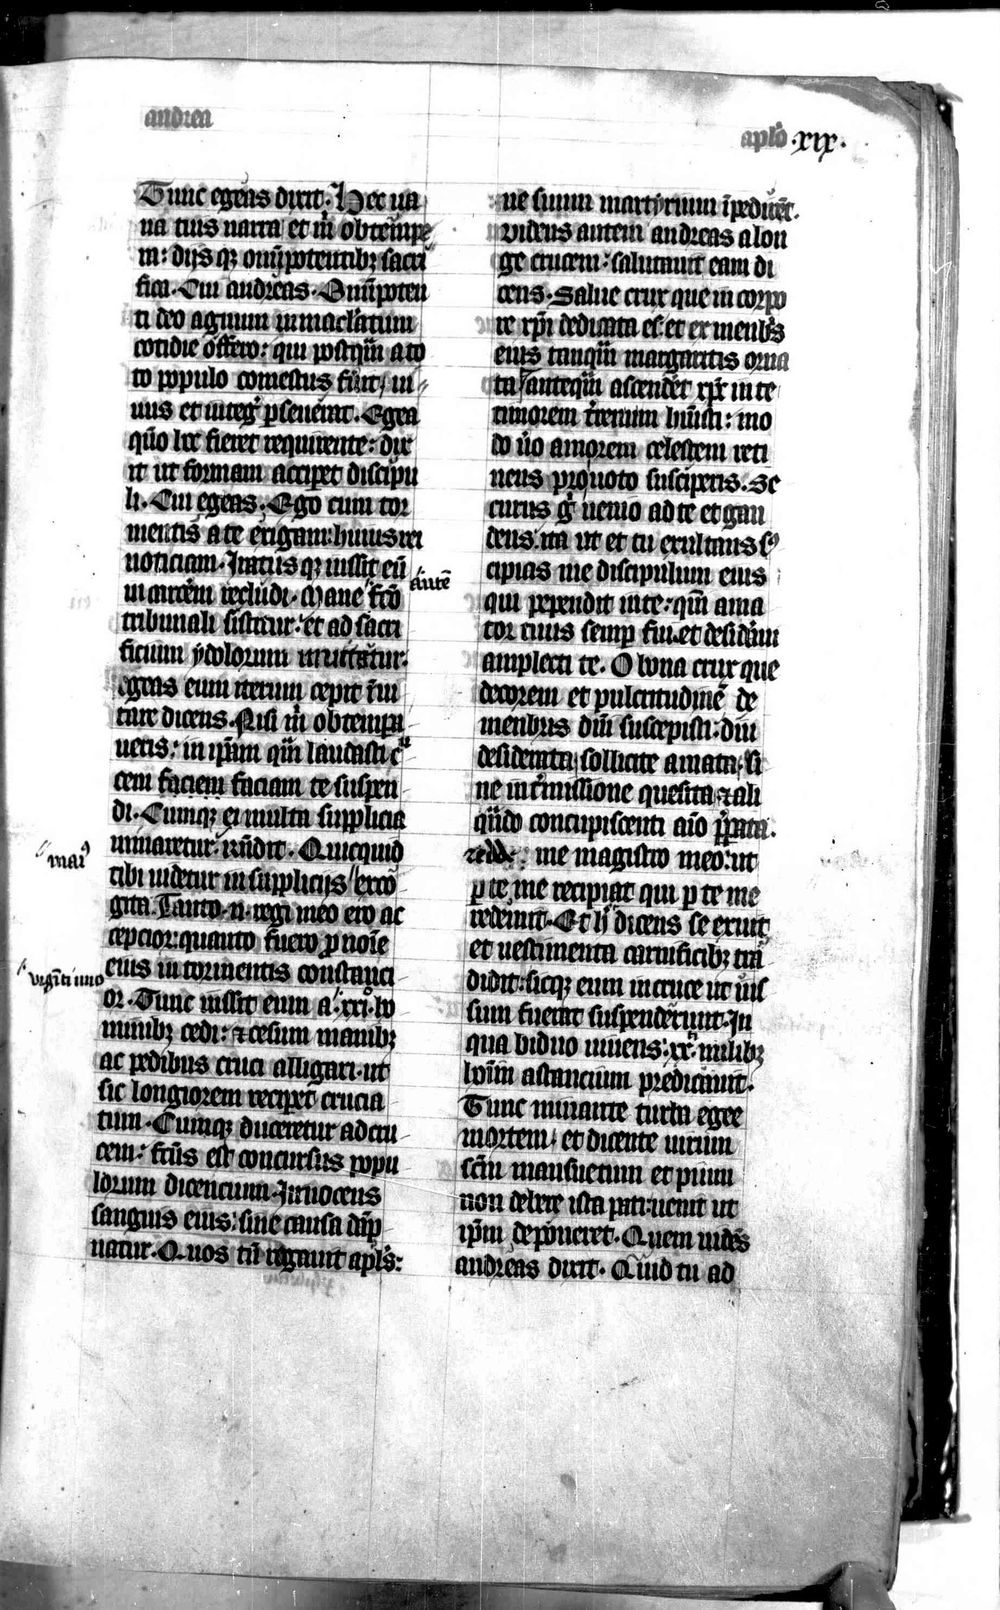 andrea
aplo .xix.
Tunc egeas dixit. Hec ua
na tuis narra et m̄ obtempe
ra: dijs qȝ omīpotentibȝ sacri
fica. Cui andreas. Omīpoten
ti deo agnum inmaclatum
cotidie offero: qui postqm̄ a to
to populo comestus fuīt, ui
uus et integ̉ ꝑseuerat. Egea
quō hec fieret requirente: dix
it ut formam acciperet discipu
li. Cui egeas. Ego cum tor
mentis a te exigam huius rei
noticiam. Iratus qȝ iussit eū
in carcerem recludi. Mane fc̄o
autē
tribunali sistitur: et ad sacri
ficium ydolorum inuitatur.
Egeas eum iterum cepit inui
tare dicens. Nisi m̄ obtempa
ueris: in ipsam qm̄ laudasti c̄
cem faciem faciam te suspen
di. Cumqȝ ei multa supplicia
minaretur: rn̄dit. Quicquid
mai9
tibi uidetur in supplicijs exco
gita. Tanto .n. regi meo ero ac
cepcior: quanto fuero ꝓ noīe
eius in tormentis constanci
viginti uno
or. Tunc iussit eum a .xxi. ho
minibȝ cedi: et cesum manibȝ
ac pedibus cruci alligari. ut
sic longiorem reciperet crucia
tum. Cumqȝ duceretur ad cru
cem: fc̄us est concursus popu
lorum dicencium. Innocens
sanguis eius: sine causa dāp
natur. Quos tn̄ rogauit apl̄s:
ne suum martyrium īpediret.
videns autem andreas a lon
ge crucem: salutauit eam di
cens. Salue crux que in corpo
re xp̄i dedicata es: et ex menbris
eius tanqm̄ margaritis orna
ta anteqm̄ ascenderet xp̄c in te
timorem t̉renum huisti: mo
do ủo amorem celestem reti
nens pro uoto susciperis. Se
curus g̉ uenio ad te et gau
dens: ita ut et tu exultans s9
cipias me discipulum eius
qui pependit in te: qm̄ ama
tor tuus semp fui. et desideraui
amplecti te. O bona crux que
decorem et pulcritudinē de
menbris dn̄i suscepisti: diu
desiderata sollicite amata, si
ne int̉missione quesita et ali
qn̄do concupiscenti aīo p̄parata.
redde me magistro meo: ut
ꝑ te me recipiat qui ꝑ te me
redemit. Et h̄ dicens se exuit
et uestimenta carnificibȝ tra
didit: sicqȝ eum in cruce ut iūs
sum fuerat suspenderunt. In
qua biduo uiuens: xx. milibȝ
hoīm astancium predicauit.
Tunc minante turba egee
mortem, et dicente uirum
scm̄ mansuetum et pium
non debere ista pati. uenit ut
ipm̄ deponeret. Quem uidens
andreas dixit. Quid tu ad